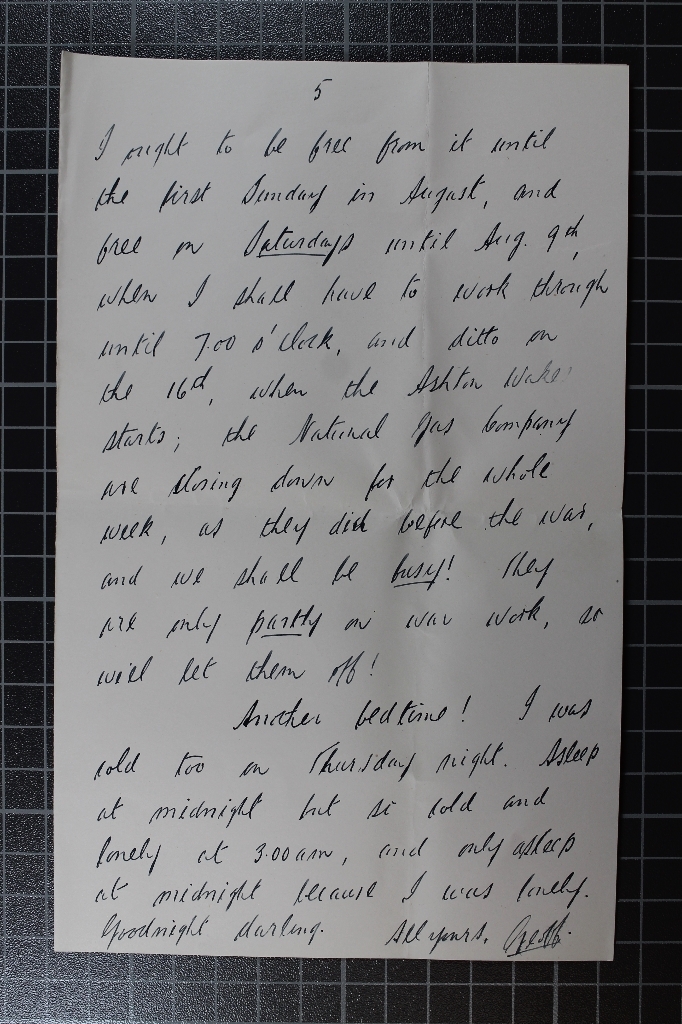 5
I ought to be free from it until
the first Sunday in August, and
free on Saturdays until Aug. 9th,
when I shall have to work through
until 7.00 o'clock, and ditto on
the 16th, when the Ashton Wakes
starts; the National Gas Company
are closing down for the whole
week, as they did before the war,
and we shall be busy! They
are only partly on war work, so
we'll let them off!
Another bedtime! I was
cold too on Thursday night. Asleep
at midnight but so cold and
lonely at 3.00am, and only asleep
at midnight because I was lonely.
Goodnight darling. All yours, Geoff.